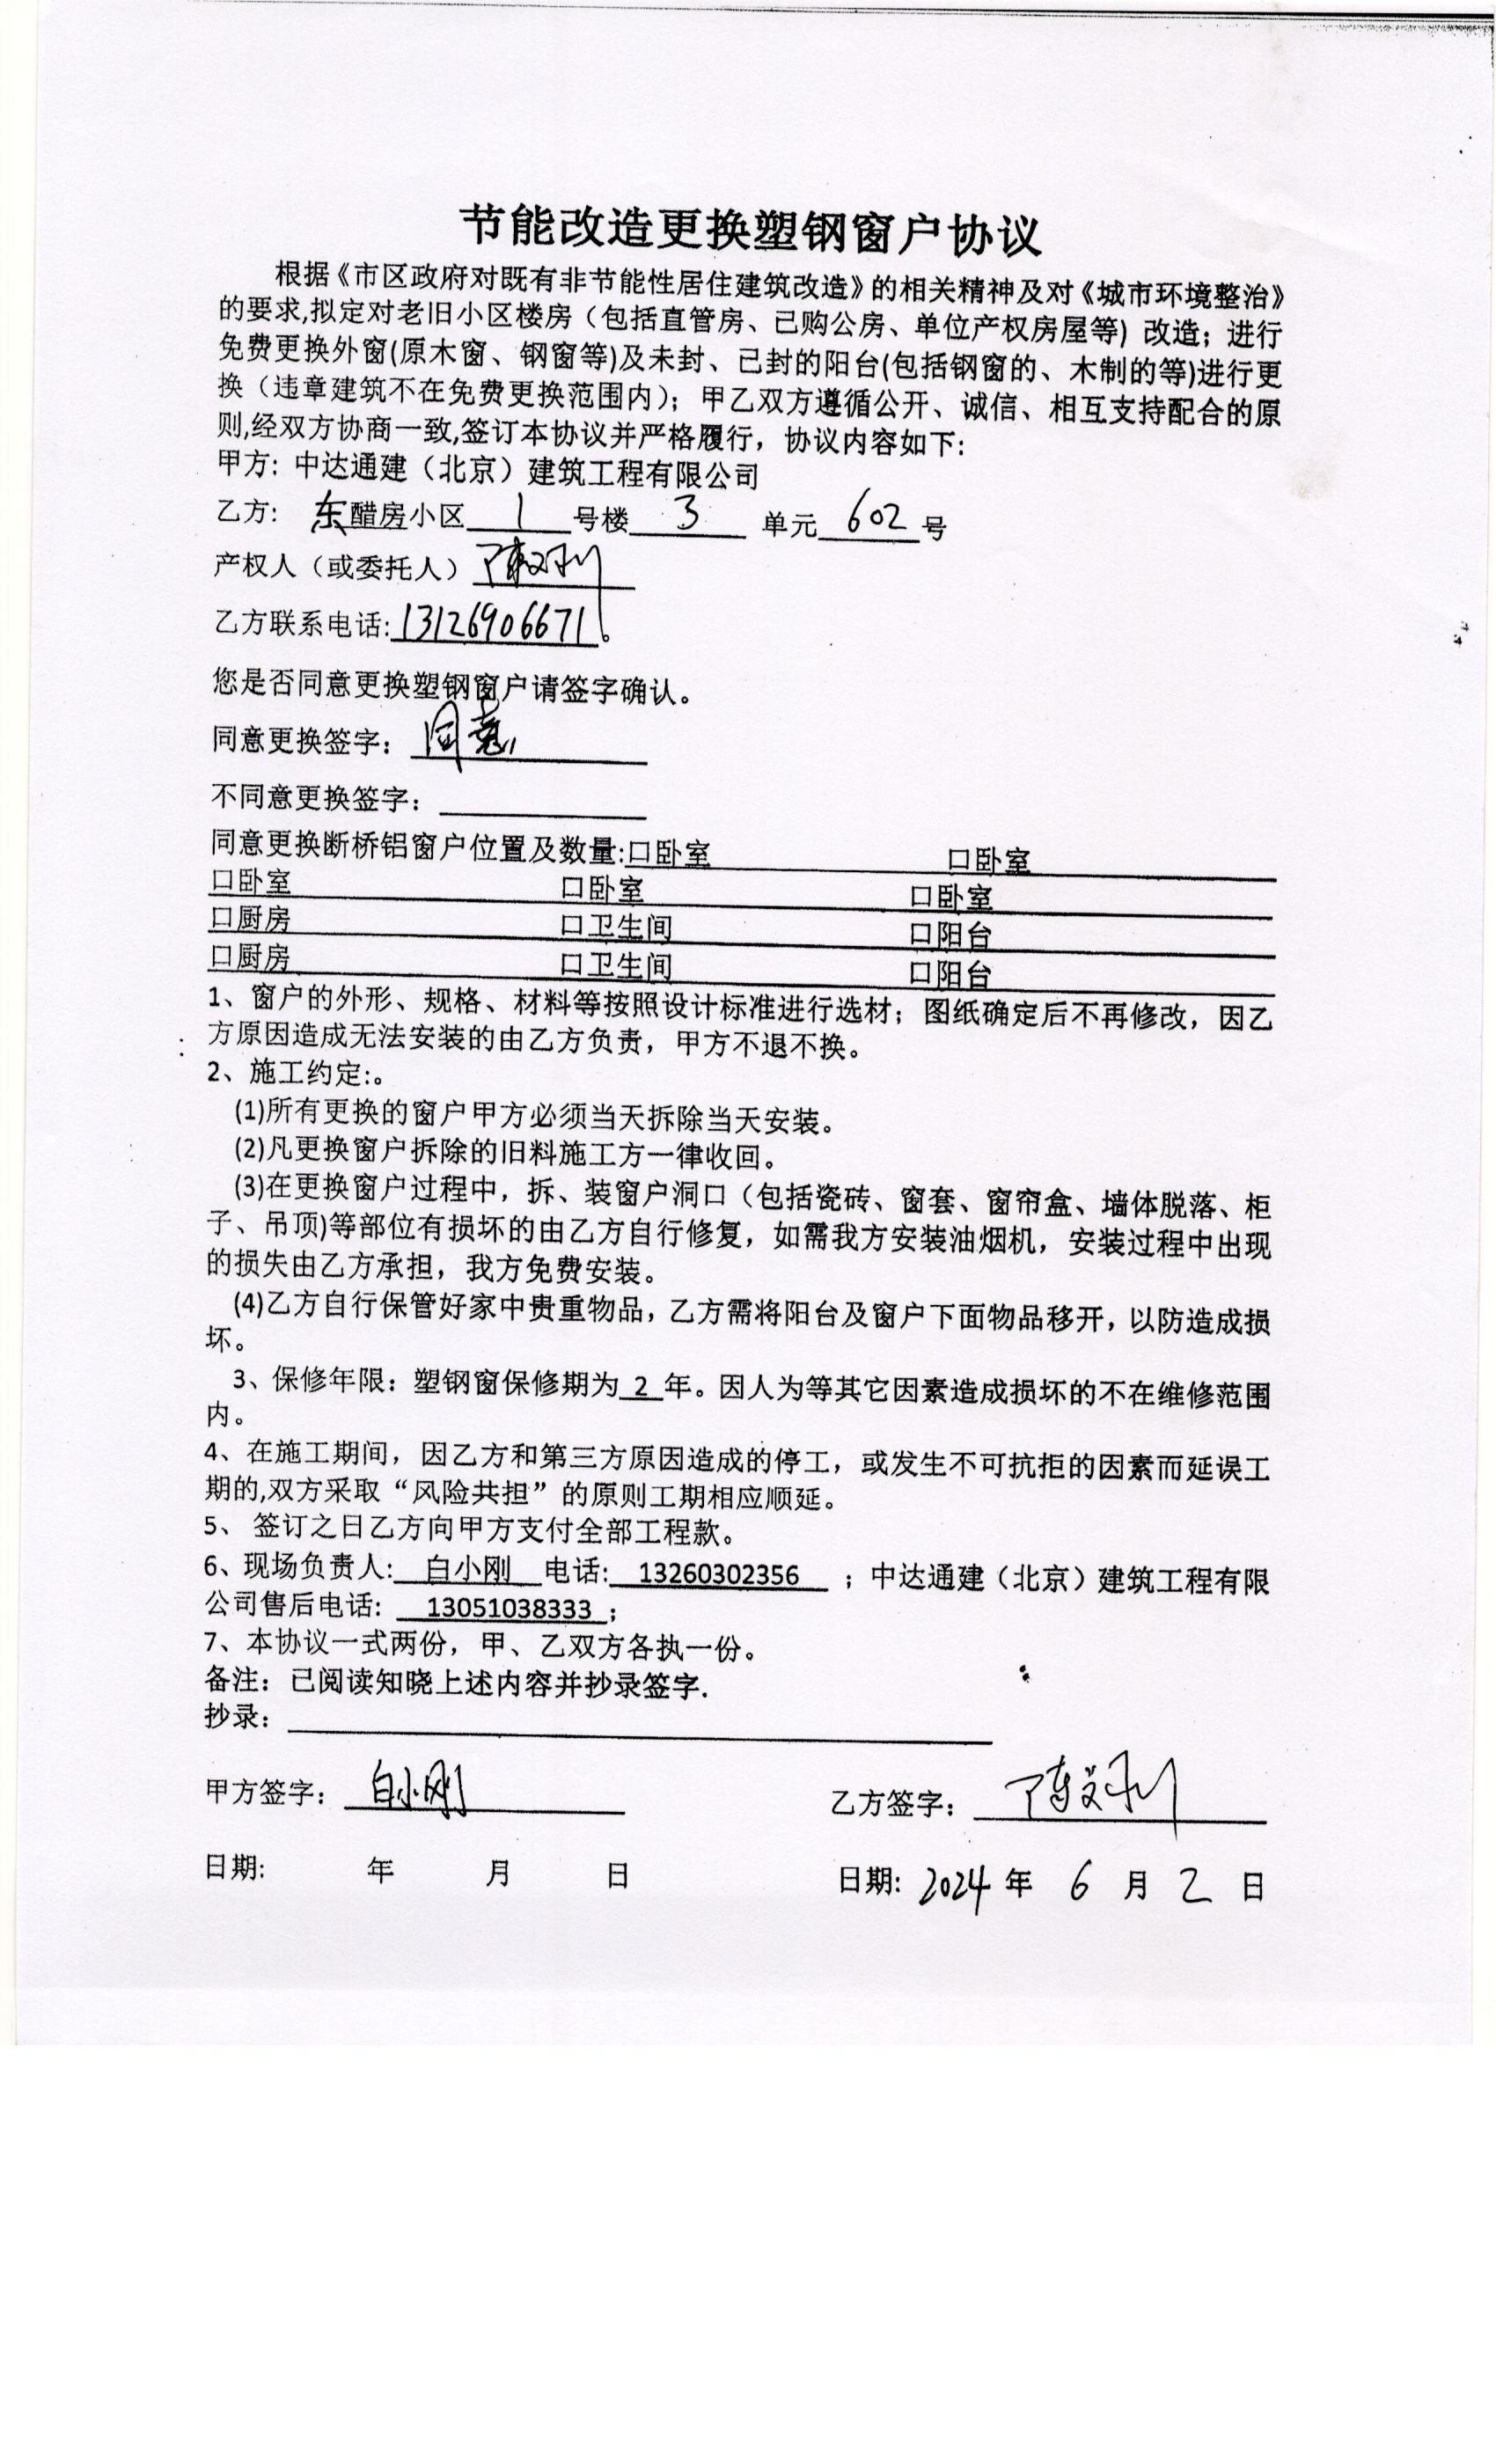 节能改造更换塑钢窗户协议
根据《市区政府对既有非节能性居住建筑改造》的相关精神及对《城市环境整治》
的要求,拟定对老旧小区楼房（包括直管房、已购公房、单位产权房屋等）改造；进行
免费更换外窗(原木窗、钢窗等)及未封、已封的阳台(包括钢窗的、木制的等)进行更
换（违章建筑不在免费更换范围内）；甲乙双方遵循公开、诚信、相互支持配合的原
则,经双方协商一致,签订本协议并严格履行，协议内容如下：
甲方：中达通建（北京）建筑工程有限公司
乙方： 东醋房小区 1 号楼 3 单元 602 号
产权人（或委托人）
乙方联系电话: 13126906671。
您是否同意更换塑钢窗户请签字确认。
同意更换签字： 同意
不同意更换签字：
同意更换断桥铝窗户位置及数量:口卧室 口卧室
口卧室 口卧室 口卧室
口厨房 口卫生间 口阳台
口厨房 口卫生间 口阳台
1、窗户的外形、规格、材料等按照设计标准进行选材；图纸确定后不再修改，因乙
方原因造成无法安装的由乙方负责，甲方不退不换。
2、施工约定:。
(1)所有更换的窗户甲方必须当天拆除当天安装。
(2)凡更换窗户拆除的旧料施工方一律收回。
(3)在更换窗户过程中，拆、装窗户洞口（包括瓷砖、窗套、窗帘盒、墙体脱落、柜
子、吊顶)等部位有损坏的由乙方自行修复，如需我方安装油烟机，安装过程中出现
的损失由乙方承担，我方免费安装。
(4)乙方自行保管好家中贵重物品，乙方需将阳台及窗户下面物品移开，以防造成损
坏。
3、保修年限：塑钢窗保修期为 2 年。因人为等其它因素造成损坏的不在维修范围
内。
4、在施工期间，因乙方和第三方原因造成的停工，或发生不可抗拒的因素而延误工
期的,双方采取“风险共担”的原则工期相应顺延。
5、 签订之日乙方向甲方支付全部工程款。
6、现场负责人: 白小刚 电话: 13260302356 ；中达通建（北京）建筑工程有限
公司售后电话: 13051038333 ；
7、本协议一式两份，甲、乙双方各执一份。
备注：已阅读知晓上述内容并抄录签字.
抄录：
甲方签字： 白小刚 乙方签字：
日期: 年 月 日 日期: 2024 年 6 月 2 日